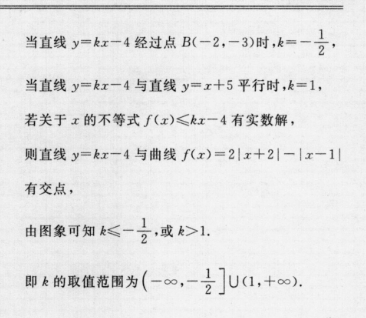 当直线 y=kx-4 经过点 B(-2,-3)时,k=-1/2,
当直线 y=kx-4 与直线 y=x+5 平行时,k=1,
若关于 x 的不等式 f(x)≤kx-4 有实数解,
则直线 y=kx-4 与曲线 f(x)=2|x+2|-|x-1|
有交点,
由图象可知 k≤-1/2,或 k>1.
即 k 的取值范围为(-∞,-1/2]∪(1,+∞).